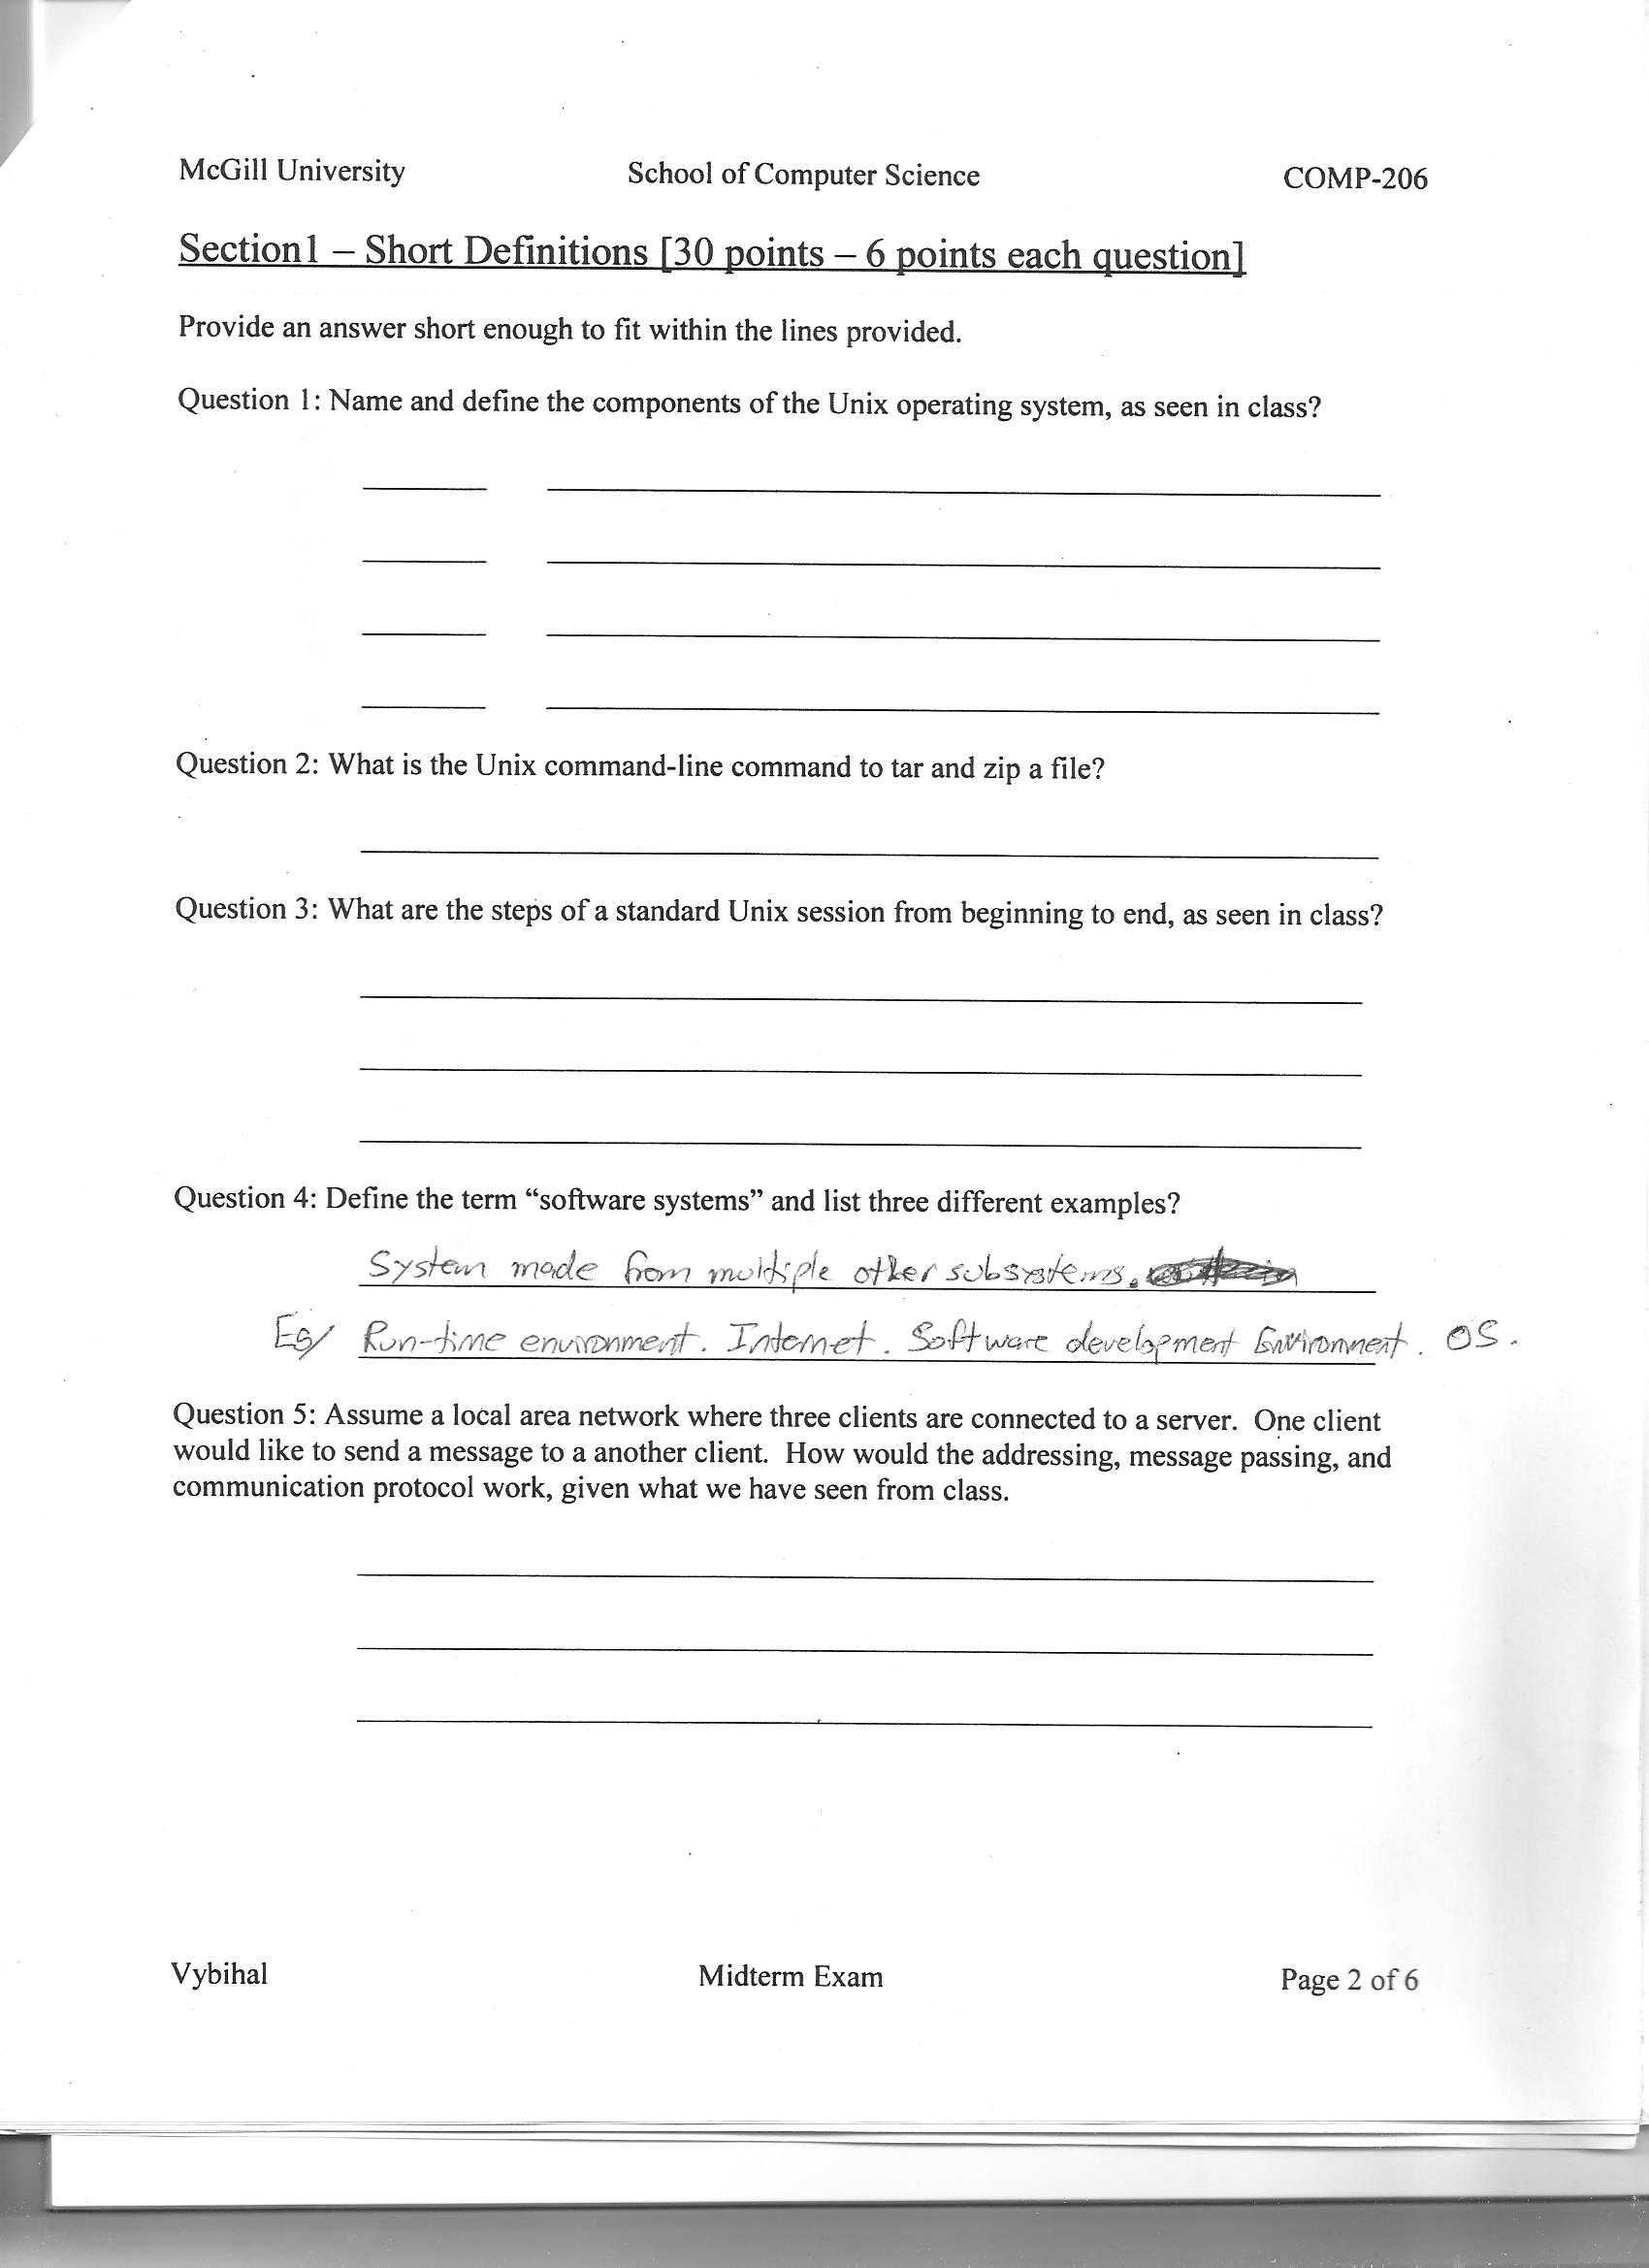 McGill University School of Computer Science COMP-206
Section1 – Short Definitions [30 points – 6 points each question]
Provide an answer short enough to fit within the lines provided.
Question 1: Name and define the components of the Unix operating system, as seen in class?
Question 2: What is the Unix command-line command to tar and zip a file?
Question 3: What are the steps of a standard Unix session from beginning to end, as seen in class?
Question 4: Define the term “software systems” and list three different examples?
System made from multiple other subsystems.
Eg/ Run-time environment. Internet. Software development Environment. OS.
Question 5: Assume a local area network where three clients are connected to a server. One client
would like to send a message to a another client. How would the addressing, message passing, and
communication protocol work, given what we have seen from class.
Vybihal Midterm Exam Page 2 of 6